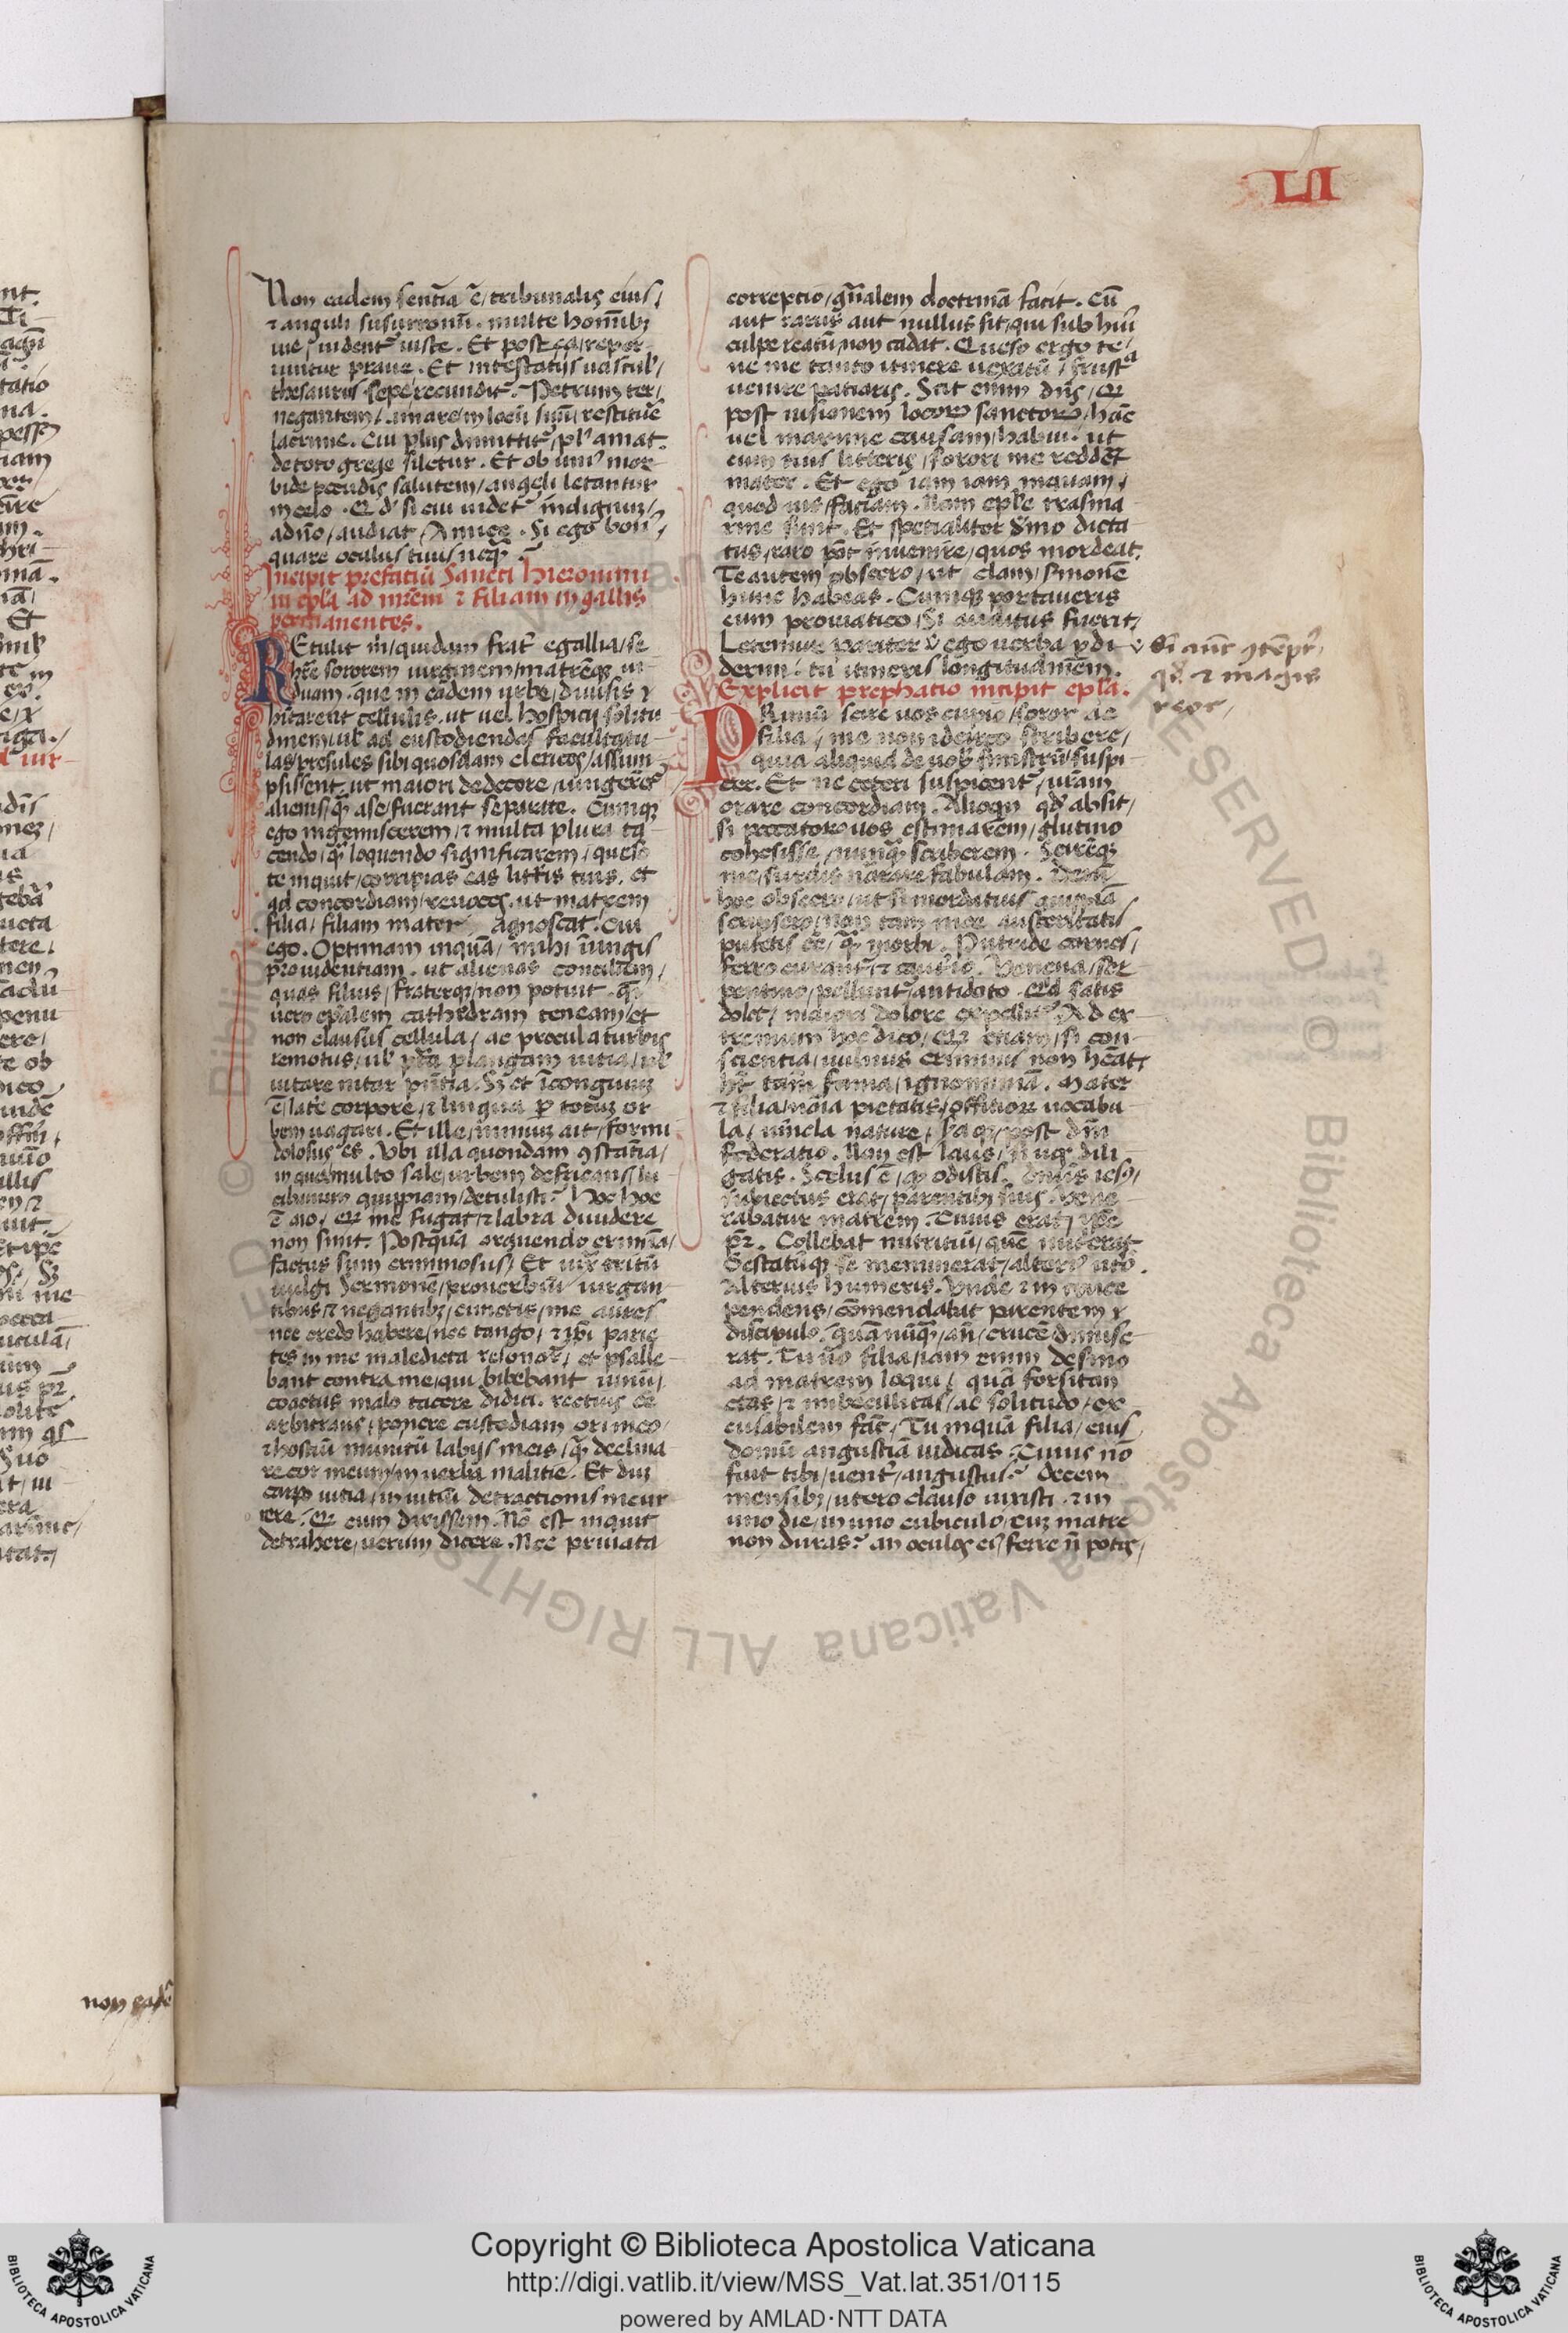 LII
Non eadem sentīa ē/ tribunalis eius/
⁊ anguli susurronū. multe homīb;
uie/ uident᷑ iuste. Et post ea/ repor-
untur praue. Et in testatijs uascul᷑/
thesaurus sepe recundit᷑. Petrum ter/
negantem/. amare in locū suū/ restitue
lacrime. Cui plus dimittit᷑/ pl᷑ amat.
de toto grege siletur. Et ob uni᷑ mor-
bide pecudis salutem/ angeli letantur
in celo. Qd᷑ si cui uidet᷑ indignuz/
a dn̄o/ audiat/ Amice. Si ego bon᷑/
quare oculus tuus neq̄.
Incipit prefatiū Sancti Hieronimi
in ep̄la ad mrēm ⁊ filiam in gallis
permanentes.
REtulit m̄/ quidam frat᷑ e gallia/ se
hr̄e sororem uirginem/ matrēq; ui-
duam. que in eadem urbe/ diuisis
hītarent cellulis. ut uel hospicij solitu
dinem/ ul᷑ ad custodiendas facultatu-
las/ presules sibi quosdam clericos/ assum-
psissent. ut maiori dedecore/ iungerēt᷑
alienis/ q̄ a se/ fuerant separate. Cumq;
ego ingemiscerem/ ⁊ multa plura ta-
cendo/ q̄ loquendo significarem/ queso
te inquit/ corripias eas litt̄is tuis. et
ad concordiam/ reuoces. ut matrem
filia/ filiam mater/ agnoscat. Cui
ego. Optimam inquā/ mihi iniungis
prouidentiam. ut alienas conciliem/
quas filius/ fraterq;/ non potuit. q̄
uero ep̄alem cathedram teneam/ et
non clausus cellula/ ac procul a turbis
remotus/ ul᷑ plangam uitia/ ul᷑
uitare nitar p̄ntia. Sz et īcongruuz
ē/ late corpore/ ⁊ lingua p totuz or
bem uagari. Et ille/ nimiuz ait/ formi
dolosus es. Vbi illa quondam ꝯstātia/
in qua multo sale/ urbem defricans/ lu
cilianum quippiam/ detulisti? Hoc hoc
ē aio/ q̄ me fugat/ ⁊ labra diuidere
non sinit. Postquā arguendo crimīa/
factus sum criminosus/ Et iuxta tritū
uulgi sermonē/ prouerbiū iurgan
tibus/ ⁊ negantib;/ cunctis/ me aures
nec credo habere/ nec tango/ ⁊ ip̄i parie
tes in me maledicta resonar̄t/ et psalle-
bant contra me/ qui bibebant uinū/
coactus malo tacere didici. rectius ee
arbitrans/ ponere custodiam ori meo/
⁊ hostiū munitū labijs meis/ q̄ declina
re cor meum/ in uerba malitie. Et duz
carpo uitia/ in uitiū detractionis incur
rere. Q̄ cum dixissem. Nō est inquit
detrahere/ uerum dicere. Nec priuata
correptio/ gn̄alem doctrinā facit. Cū
aut rarus aut nullus sit/ qui sub hui᷑
culpe reatū/ non cadat. Queso ergo te/
ne me tanto itinere uexatū/ frustᵃ
uenire patiaris. Scit enim dn̄s/ q̄
post uisionem locoꝝ sanctoꝝ/ hāc
uel maxime causam/ habui. ut
cum tuis litteris/ sorori me redder̄
mater. Et ego iam iam inquam/
quod uis/ faciam. Nam ep̄le trasma-
rine sunt. Et specialiter s̄mo dicta-
tus/ raro pōt inuenire/ quos mordeat.
Te autem obsecro/ ut clam/ simonē
hunc habeas. Cumq; portaueris
eum pro uiatico/ Si auditus fuerit/
Letemur pariter ego uerba pdi-
derim. tu itineris longitudinem.
Explicit prephatio incipit ep̄la.
PRimū scire uos cupio/ soror ac
filia/ me non idcirco scribere/
quia aliquid de uob᷑ sinistrū/ suspi
cer. Et ne ceteri suspicent᷑/ ur̄am
orare concordiam. Alioqn̄ qd᷑ absit/
si peccatoꝝ uos estimarem/ glutino
cohesisse/ nunq̄ scriberem. Scireq;
me/ surdis narrare fabulam.
hoc obsecro/ ut si mordatius quippiā
scripsero/ non tam mee austeritatis
putetis ee/ q̄ morbi. Putride carnes/
ferro curant᷑/ ⁊ cauterio. Venena/ ser
pentino/ pellunt᷑/ antidoto. Qd᷑ satis
dolet/ maiori dolore expellit᷑. Ad ex
tremum hoc dico/ q̄ etiam/ si con-
scientia/ uulnus criminis non heāt/
ht tam̄ fama/ ignominiā. Mater
⁊ filia/ nōia pietatis/ offitioꝝ uocabu-
la/ uincla nature/ post dm̄
federatio. Non est laus/ si uos dili
gatis. Scelus ē/ q̄ odistis. Dn̄s ies᷑/
subiectus erat/ parentib; suis. Vene
rabatur matrem. Cuius erat/ ip̄e
pr̄. Collebat nutritiū/ quē nutierat
Gestatūq; se meminerat/ alteri᷑ uto.
Alterius humeris. Vnde ⁊ in cruce
pendens/ cōmendabat parentem
discipulo. quā nūq̄/ an̄/ crucē dimise-
rat. Tu ūo filia/ iam enim desino
ad matrem loqui/ quā forsitan
etas/ ⁊ imbecillitas/ ac solitudo/ ex
cusabilem facit/ Tu inquā filia/ eius
domū angustā iudicas. Cuius nō
fuit tibi/ uent᷑/ angustus? Decem
mensib;/ utero clauso uixisti. ⁊ in
uno die/ in uno cubiculo/ cuz matre
non duras? an oculos ei᷑/ ferre n̄ potis/
Si aut̄ ꝯtēpt᷑/
qd᷑ ⁊ magis
reor/
non eadē
Copyright © Biblioteca Apostolica Vaticana
http://digi.vatlib.it/view/MSS_Vat.lat.351/0115
powered by AMLAD·NTT DATA